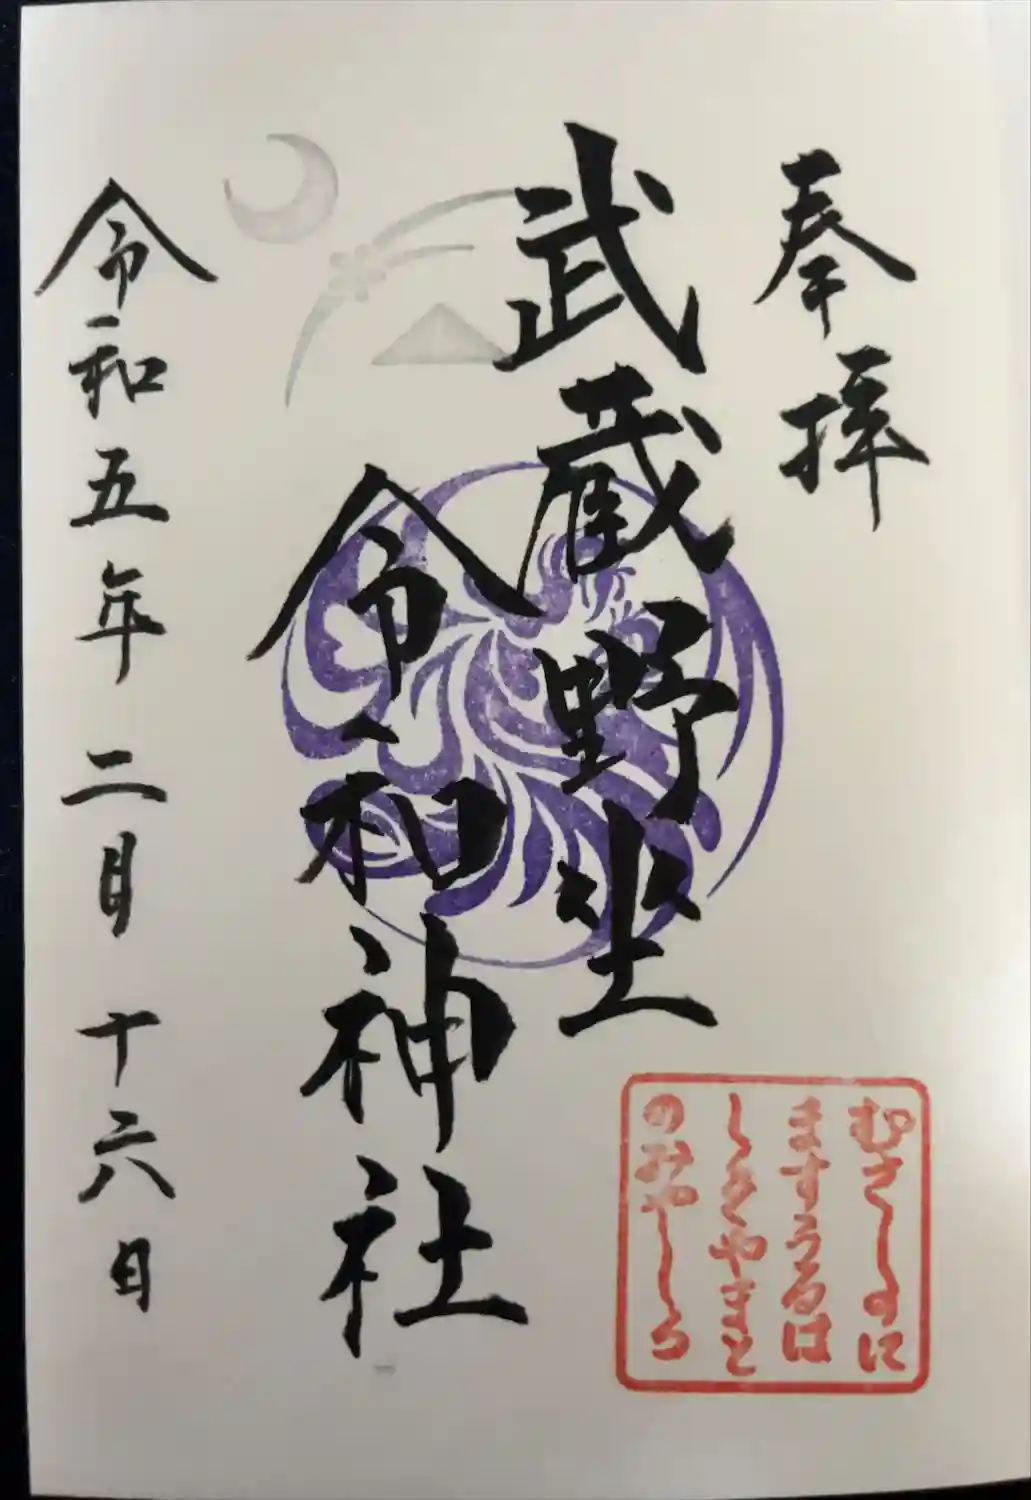 奉拝
武蔵野坐
令和神社
令和五年二月十六日
むさしのに
ますうるは
しきやまと
のみやしろ